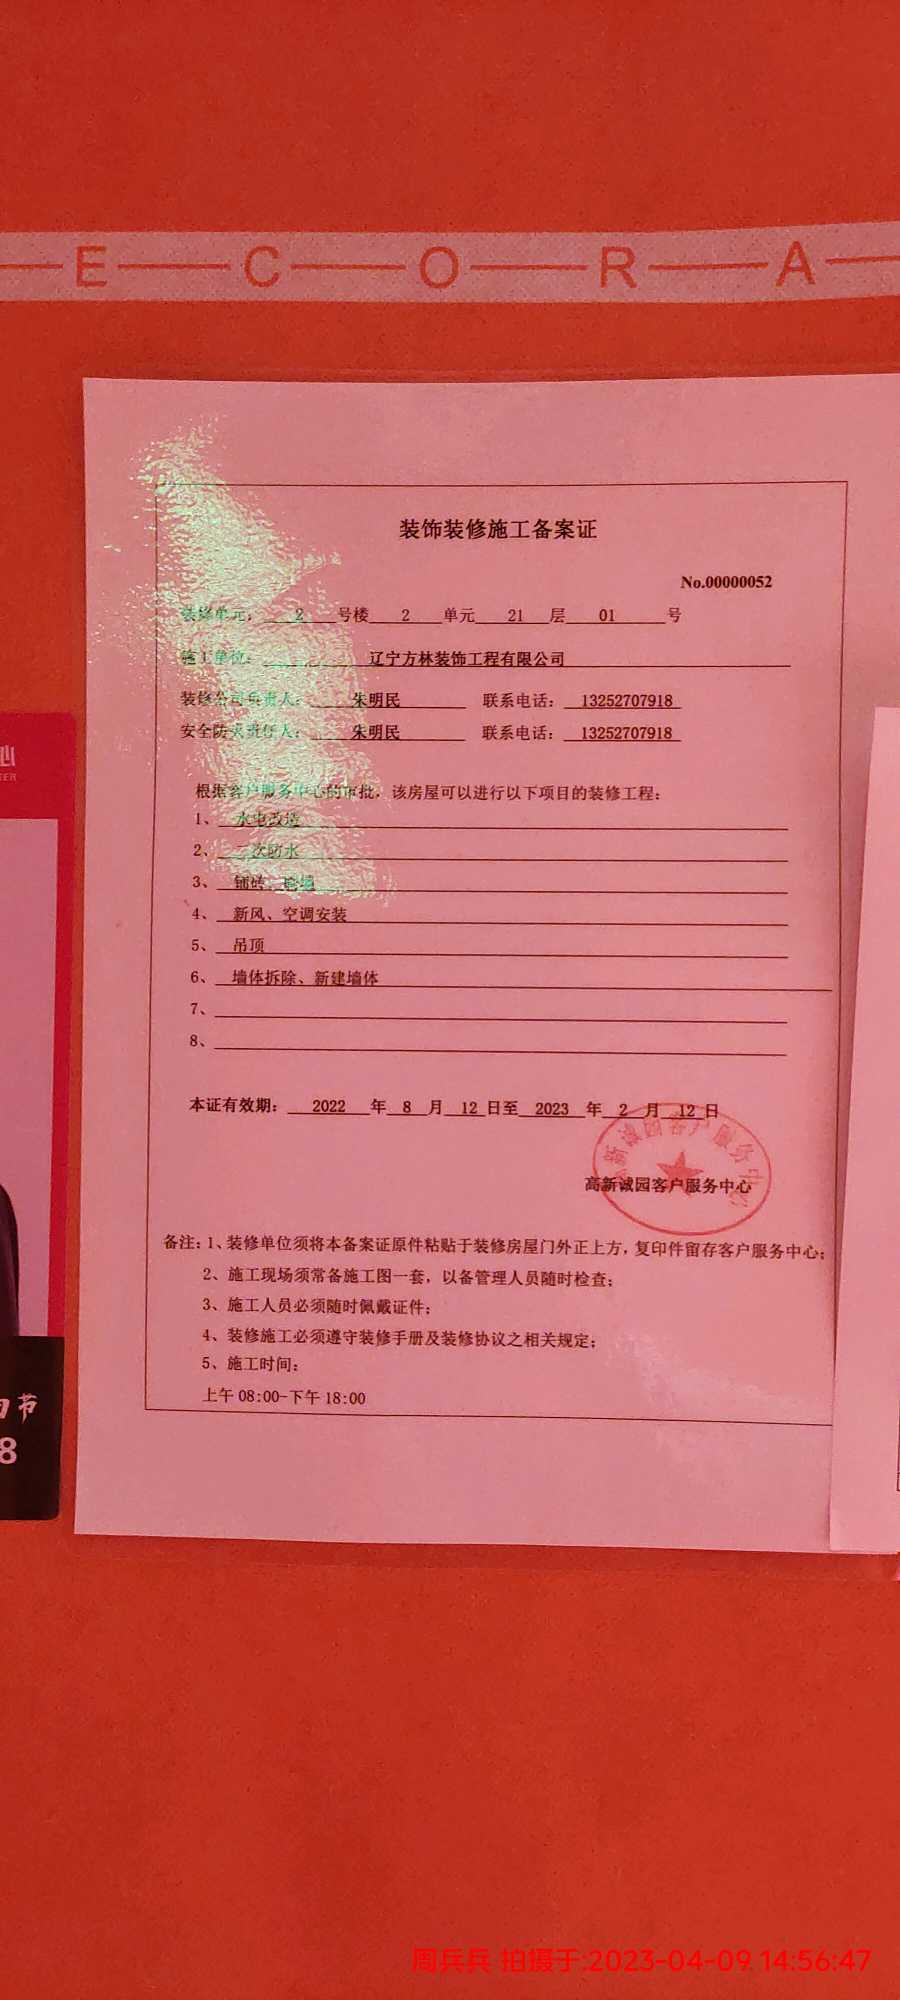 E C O R A
装饰装修施工备案证
No.00000052
装修单元: 2 号楼 2 单元 21 层 01 号
施工单位: 辽宁方林装饰工程有限公司
装修公司负责人: 朱明民 联系电话: 13252707918
安全防火责任人: 朱明民 联系电话: 13252707918
根据客户服务中心的审批，该房屋可以进行以下项目的装修工程:
1、 水电改造
2、 二次防水
3、 铺砖、
4、 新风、空调安装
5、 吊顶
6、 墙体拆除、新建墙体
7、
8、
本证有效期: 2022 年 8 月 12 日至 2023 年 2 月 12 日
高新诚园客户服务中心
高新诚园客户服务中心
备注: 1、装修单位须将本备案证原件粘贴于装修房屋门外正上方，复印件留存客户服务中心;
2、施工现场须常备施工图一套，以备管理人员随时检查;
3、施工人员必须随时佩戴证件;
4、装修施工必须遵守装修手册及装修协议之相关规定;
5、施工时间:
上午 08:00-下午 18:00
心
TER
节
8
周兵兵 拍摄于:2023-04-09 14:56:47